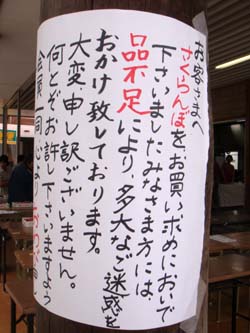 お客さまへ
さくらんぼを、お買い求めにおいで
下さいましたみなさま方には、
品不足により、多大なご迷惑を
おかけ致しております。
大変申し訳ございません。
何とぞお許し下さいますよう
会員一同心より